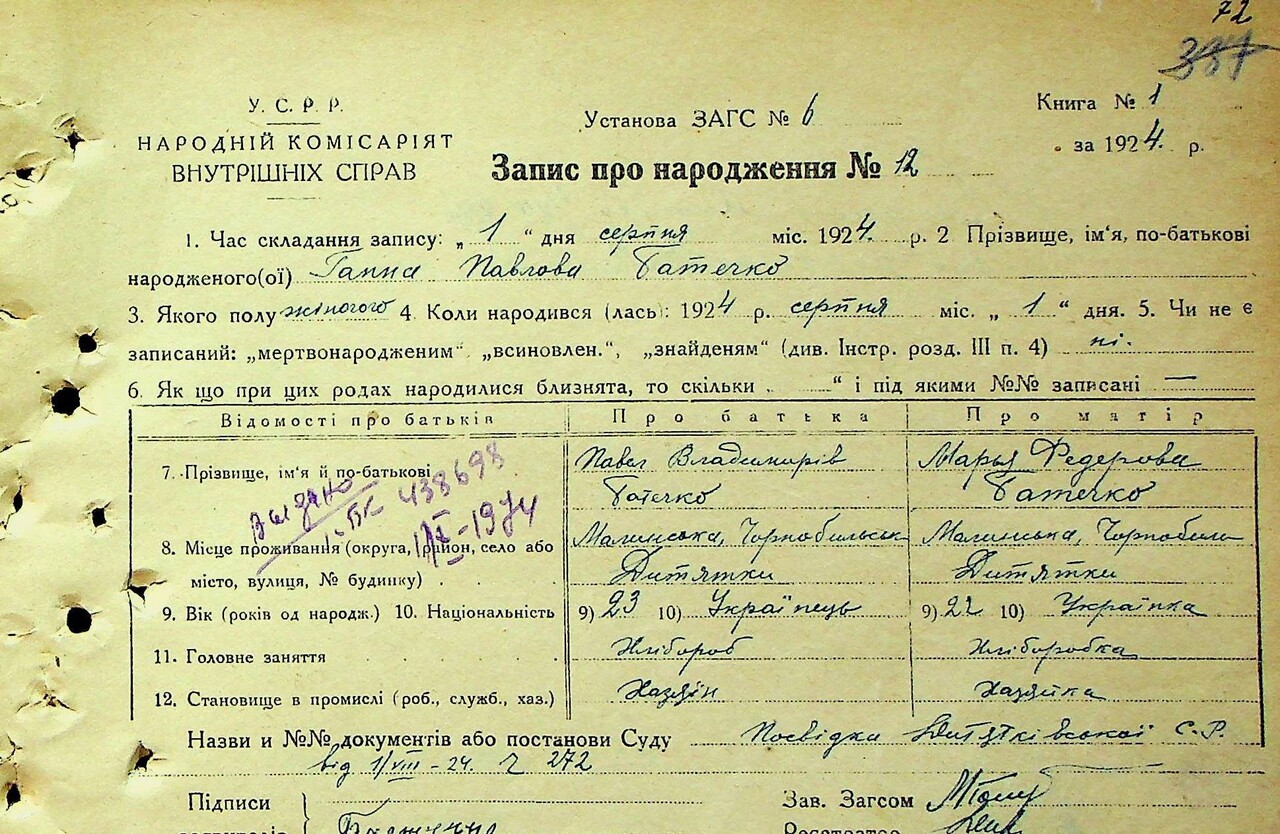 72
387
У. С. Р. Р.
НАРОДНІЙ КОМІСАРІЯТ
ВНУТРІШНІХ СПРАВ
Установа ЗАГС № 6
Книга № 1
за 1924. р.
Запис про народження № 12
1. Час складання запису: „ 1 “ дня серпня міс. 1924. р. 2 Прізвище, ім‘я, по-батькові
народженого(ої) Ганна Павлова Батечко
3. Якого полу жіногого 4. Коли народився (лась): 1924 р. серпня міс. „ 1 “ дня. 5. Чи не є
записаний: „мертвонародженим“ „всиновлен.“, „знайденям“ (див. Інстр. розд. III п. 4) ні.
6. Як що при цих родах народилися близнята, то скільки „ “ і під якими №№ записані —
Відомості про батьків Про батька Про матір
7. Прізвище, ім‘я й по-батькові Павел Владимирів Марья Федерова
Батечко Батечко
выдано
1-БК 438698
1/IX-1974
8. Місце проживання (округа, район, село або Малинська, Чорнобильськ Малинська, Чорнобиль
місто, вулиця, № будинку) Дитятки Дитятки
9. Вік (років од народж.) 10. Національність 9) 23 10) Українець 9) 22 10) Українка
11. Головне заняття Хлібороб Хліборобка
12. Становище в промислі (роб., служб., хаз.) Хазяїн Хазяйка
Назви и №№ документів або постанови Суду Посвідка Дитятківської С.Р.
від 1/VIII - 24. 272
Підписи Зав. Загсом